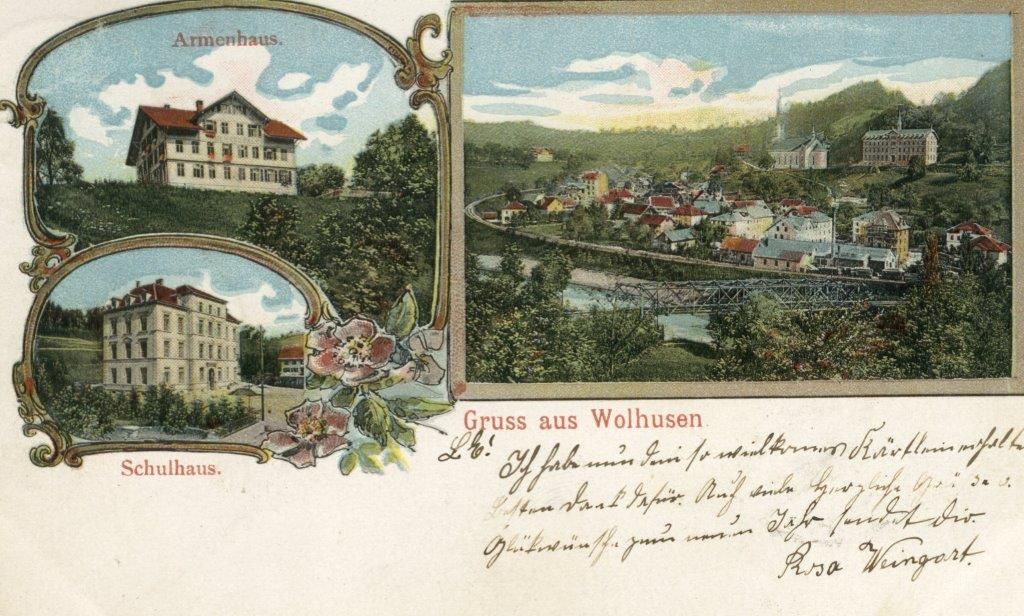 Armenhaus.
Schulhaus.
Gruss aus Wolhusen
Ich habe nun dein so wielkomes Kärtlein erhalte
Besten Dank dafür. Auch viele herzliche Grüsse u.
Glükwünsche zum neuen Jahr sendet dir
Rosa Weingart.